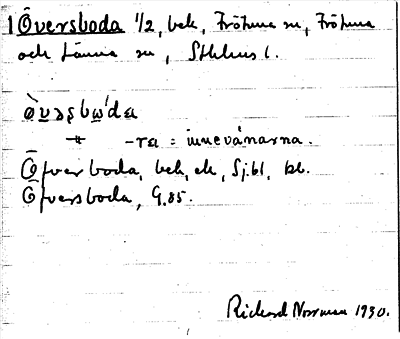 1 Översboda 1/2, bek, Frötuna sn, Frötuna
och Länna sn, Sthlms l.
-ra = innevånarna.
Öfverboda, bek, ek, Sj.bl. bl.
Öfversboda, G.85.
Rickard Norrman 1930.